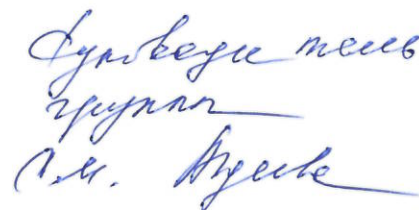 Руководитель
группы
С.М. Авдеева